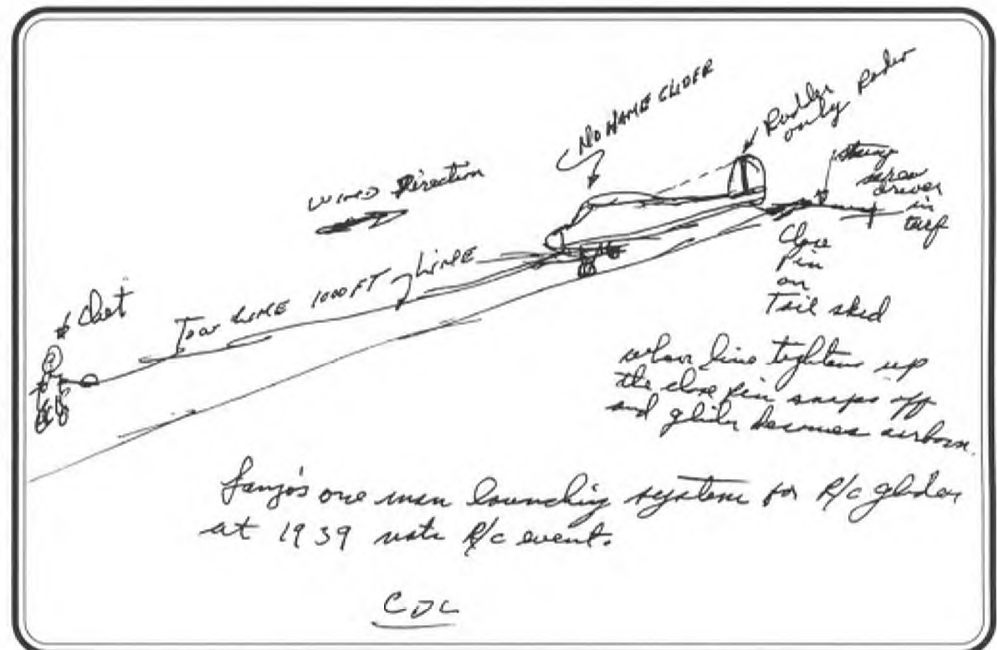 No NAME GLIDER
Rudder
only Rader
WIND Direction
string
screw
driver
in
turf
Close
Pin
on
Tail skid
Chet
Tow LINE 1000 FT LINE
when line tightens up
the close pin snaps off
and glider becomes airborne.
Lanzo's one man launching system for R/c glider
at 1939 nats R/c event.
CDL